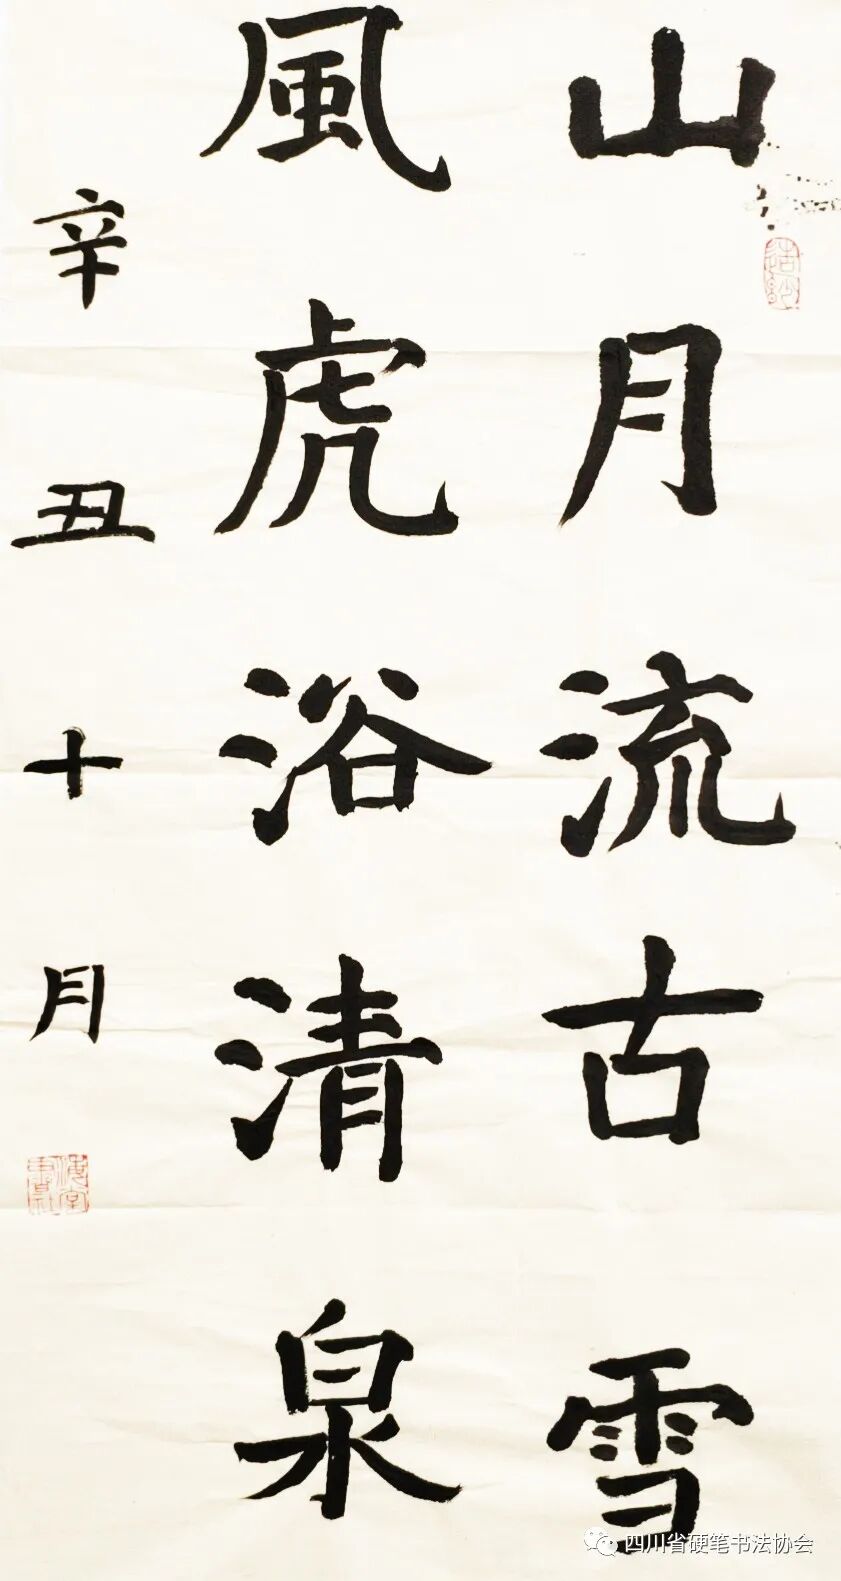 山月流古雪
風虎浴清泉
辛丑十月
四川省硬笔书法协会